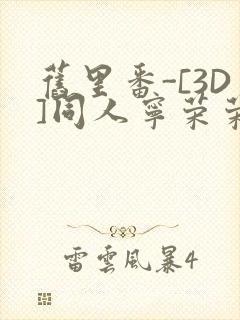 舊里番-[3D
]同人寧荣荣
雷雲風暴4